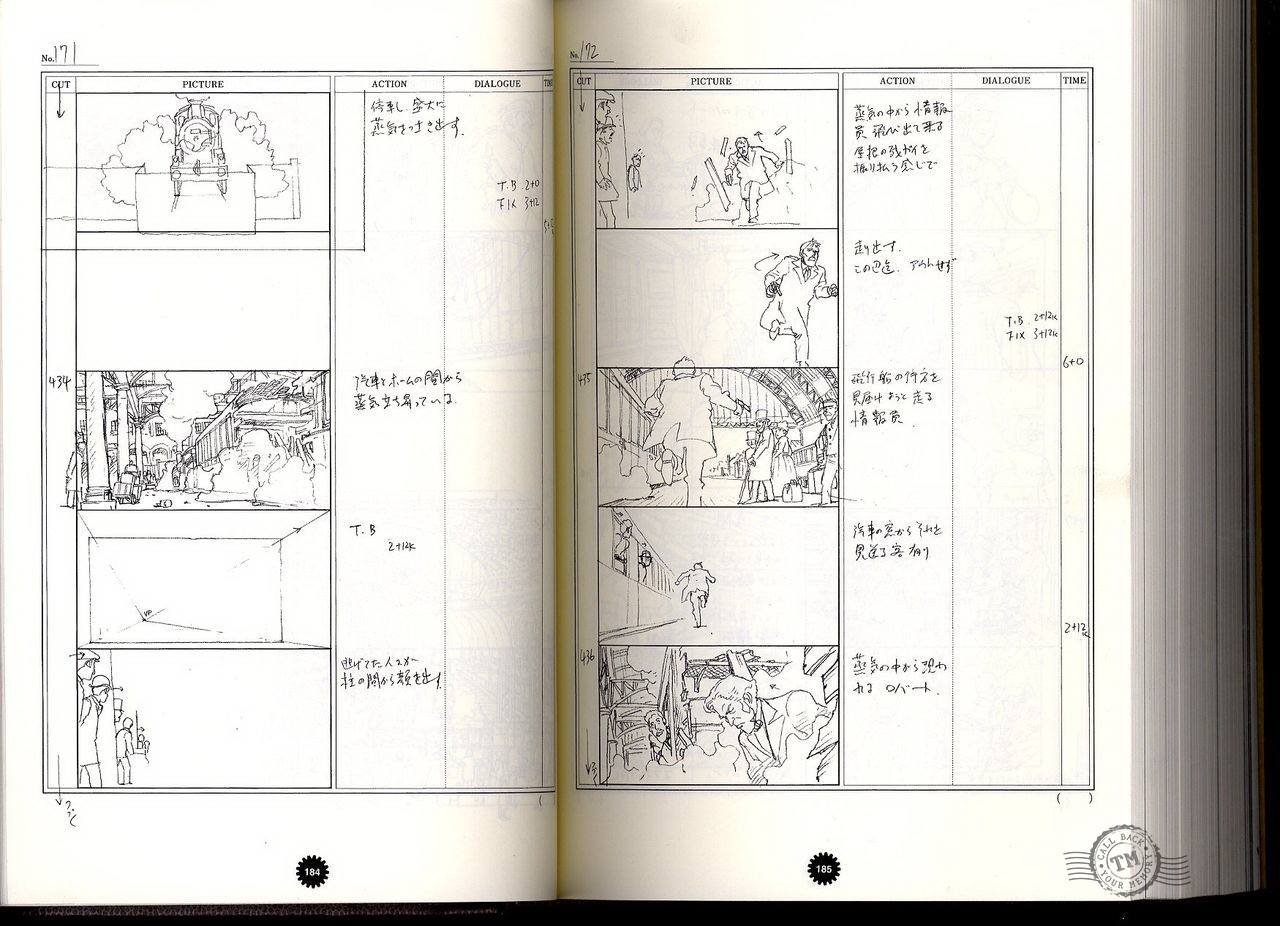 No.171
CUT PICTURE ACTION DIALOGUE TIME
停車し 盛大に
蒸気をつき出す.
T.B 2+0
FIX 3+12
434
汽車とホームの間から
蒸気立ち昇っている
T.B
2+12k
逃げてた人々が
柱の間から顔を出す.
184
No.172
CUT PICTURE ACTION DIALOGUE TIME
蒸気の中から 情報
員 飛び出て来る
屋根の残ガイを
振り払う感じで
走り出す.
この辺迄. アウトせず
T.B 2+12k
FIX 3+12k
6+0
435
飛行船の行方を
見届けようと 走る
情報員.
汽車の窓から それを
見送る客有り
2+12k
436
蒸気の中から 現わ
れる ロバート.
( )
185
CALL BACK
TM
YOUR MEMORY